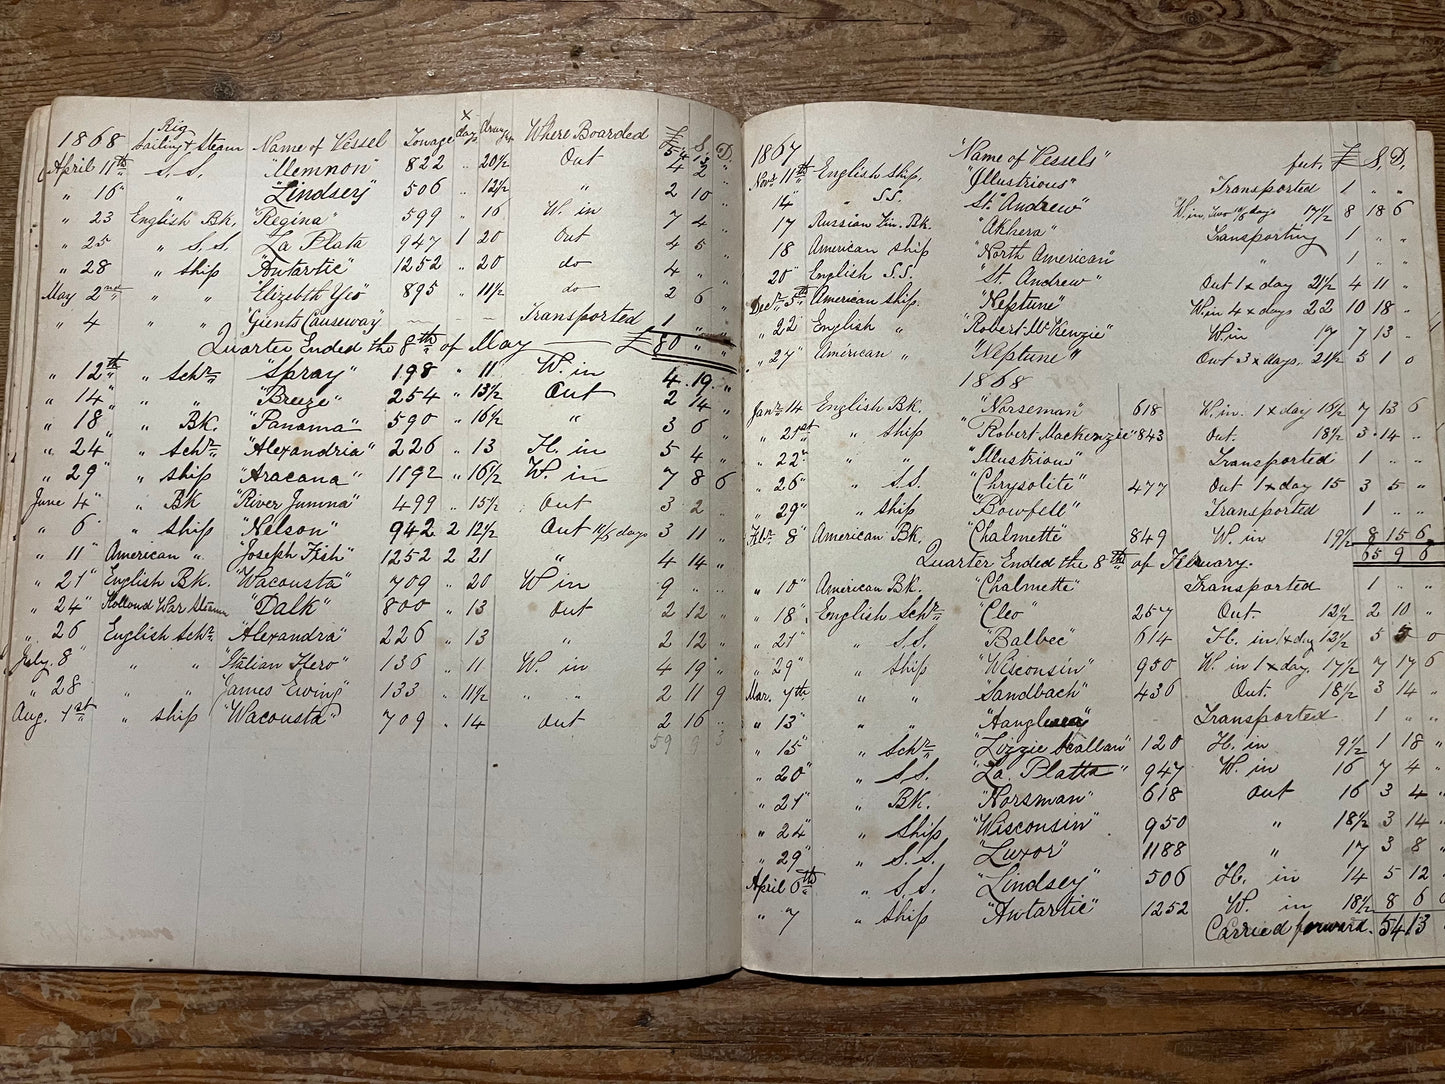 1868 Rig Sailing & Steam Name of Vessel Tonnage x days draught Where Boarded £ S. D.
54 13 "
April 11th S.S. "Memnon" 822 .. 20½ Out 4 2 "
" 16" " "Lindsey" 506 .. 12½ " 2 10 "
" 23 English Bk. "Regina" 599 " 16 W. in 7 4 "
" 25 " S.S. La Plata 947 1 20 Out 4 5 "
" 28 " Ship "Antartic" 1252 .. 20 do 4 " "
May 2nd " " "Elizebth Yeo" 895 .. 11½ do 2 6 "
" 4 " " "Gients Causeway" — — — Transported 1 " "
Quarter Ended the 8th of May — £ 80 " "
" 12th " Schr "Spray" 198 " 11 W. in 4 . 19 . "
" 14" " " "Breeze" 254 " 13½ Out 2 14 "
" 18" " Bk. "Panama" 590 .. 16½ " 3 6 "
" 24" " Schr. "Alexandria" 226 .. 13 H. in 5 4 "
" 29" " Ship "Aracana" 1192 " 16½ W. in 7 8 6
June 4" " Bk "River Jumna" 499 .. 15½ Out 3 2 ..
" 6" " Ship "Nelson" 942 2 12½ Out 10/6 days 3 11 "
" 11" American " "Joseph Fish" 1252 2 21 " 4 14 "
" 21" English Bk. "Wacousta" 709 .. 20 W in 9 " "
" 24" Holland War Steamer "Dalk" 800 " 13 Out 2 12 "
" 26 English Schr. "Alexandra" 226 .. 13 " 2 12 "
July 8" " " "Italian Hero" 136 .. 11 W. in 4 19 "
" 28 " " "James Ewing" 133 .. 11½ " " 2 11 9
Aug. 1st " Ship "Wacousta" 709 .. 14 Out 2 16 ..
59 9 3
1867 "Name of Vessels" fut. £ S. D.
Novr 11th English Ship. "Illustrious" Transported 1 " "
14" " S.S. "St. Andrew" W. in, two 10/6 days 17½ 8 18 6
" 17 Russian Bk. "Akhera" Transporting 1 . "
" 18 American Ship "North American" " 1 .. ..
" 20" English S.S. "St. Andrew" Out 1 x day 21½ 4 11 "
Decr 5th American Ship. "Neptune" W. in 4 x days 22 10 18 "
" 22 English " "Robert McKenzie" W. in 17 7 13 ..
" 27" American " "Neptune" Out 3 x days. 21½ 5 1 0
1868
Janr 14 English Bk. "Norseman" 618 W. in. 1 x day 16½ 7 13 6
" 21st " Ship "Robert Mackenzie" 843 Out. 18½ 3 . 14 ..
" 22" " " "Illustrious" Transported 1 .. ..
" 26" " S.S. "Chrysolite" 477 Out 1 x day 15 3 5 "
" 29" " Ship "Bowfell" Transported 1 .. ..
Febr 8" American Bk. "Chalmette" 849 W. in 19½ 8 15 6
Quarter Ended the 8th of February. 65 9 6
" 10" American Bk. "Chalmette" Transported 1 .. ..
" 18" English Schr. "Cleo" 257 Out. 12½ 2 10 "
" 21" " S.S. "Balbec" 614 H. in 1 x day 13½ 5 5 0
" 29" " Ship "Wisconsin" 950 W. in 1 x day. 17½ 7 17 6
Mar. 7th " " Sandbach" 436 Out. 18½ 3 14 ..
" 13" " " Transported 1 " "
" 15" " Schr "Lizzie 120 H. in 9½ 1 18 "
" 20" " S.S. "La Platta" 947 W. in 16 7 4 "
" 21" " Bk. "Norsman" 618 Out 16 3 4 "
" 24" " Ship "Wisconsin" 950 " 18½ 3 14 "
" 29" " S.S. "Luxor" 1188 " 17 3 8 "
April 6th " S.S. "Lindsey" 506 H. in 14 5 12 "
" 7 " Ship "Antartic" 1252 W. in 18½ 8 6
Carried forward. 54 13